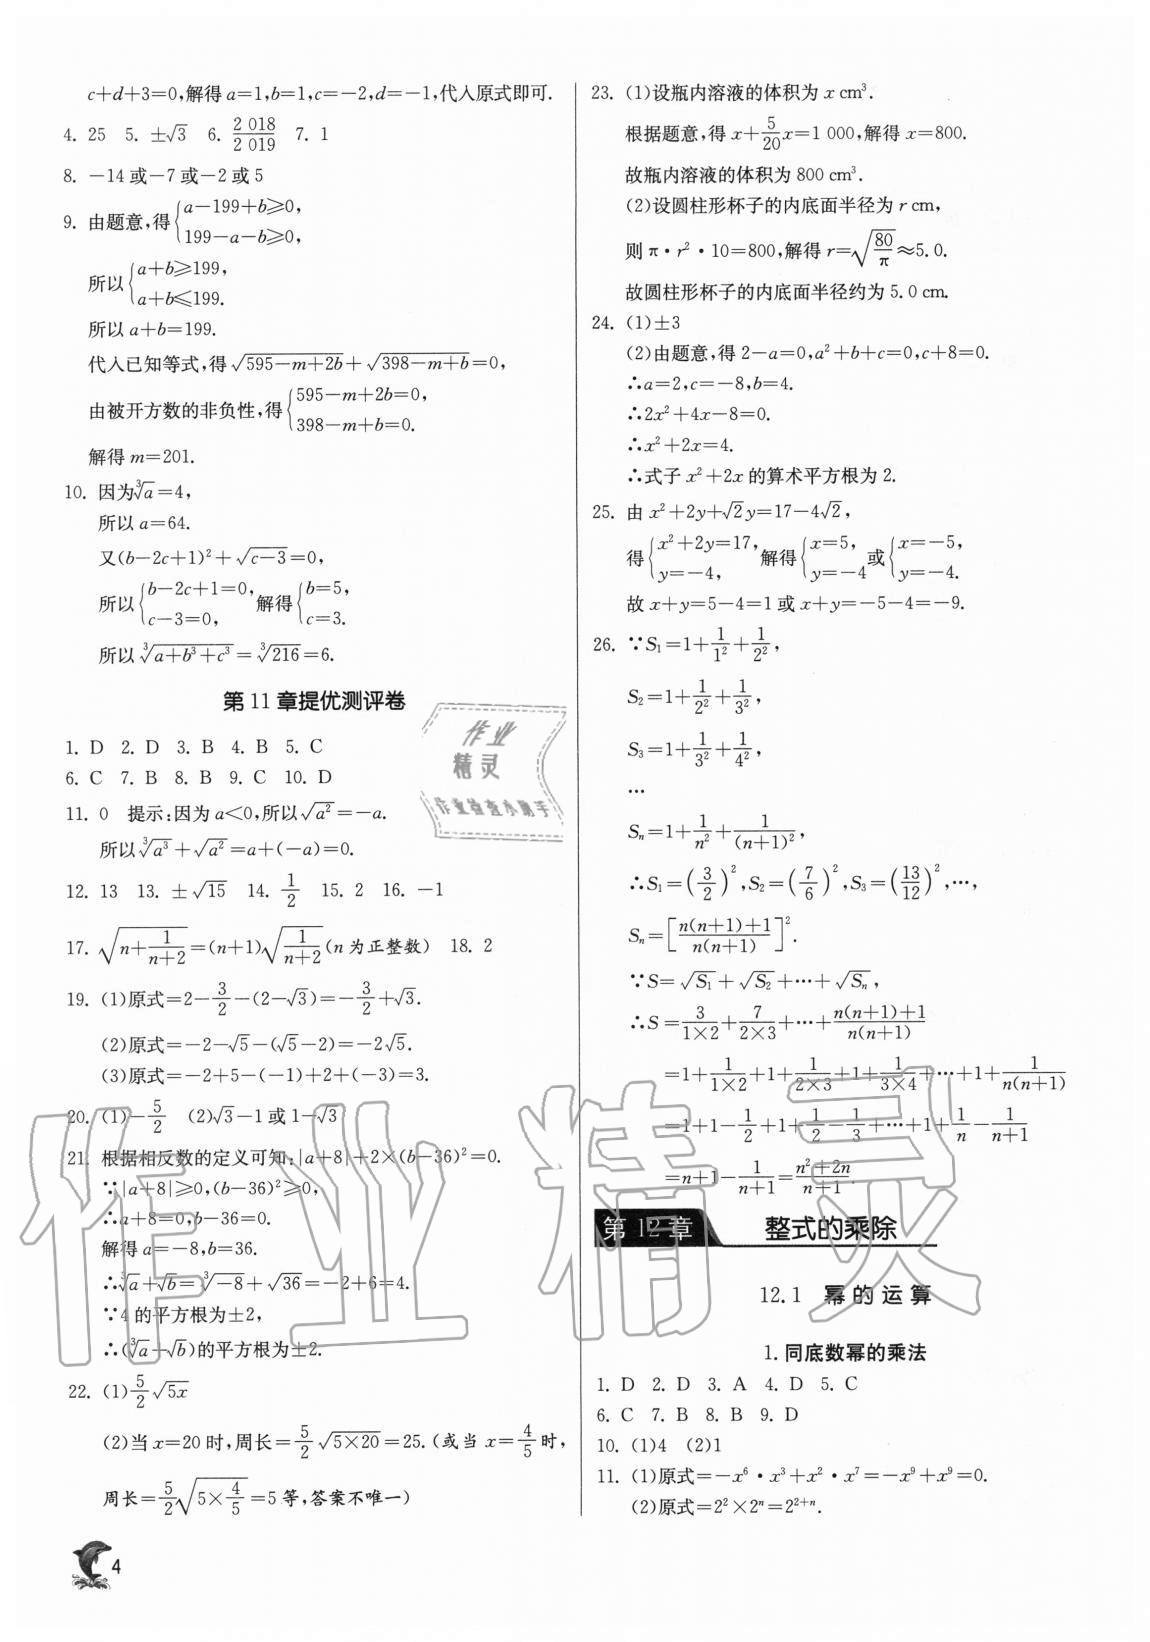 c+d+3=0,解得a=1,b=1,c=-2,d=-1,代入原式即可.
4. 25 5. ±√3 6. 2 018/2 019 7. 1
8. -14或-7或-2或5
9. 由题意,得{a-199+b≥0, 199-a-b≥0,
所以{a+b≥199, a+b≤199.
所以a+b=199.
代入已知等式,得√(595-m+2b)+√(398-m+b)=0,
由被开方数的非负性,得{595-m+2b=0, 398-m+b=0.
解得m=201.
10. 因为∛a=4,
所以a=64.
又(b-2c+1)²+√(c-3)=0,
所以{b-2c+1=0, c-3=0, 解得{b=5, c=3.
所以∛(a+b³+c³)=∛216=6.
第11章提优测评卷
1. D 2. D 3. B 4. B 5. C
6. C 7. B 8. B 9. C 10. D
11. 0 提示:因为a<0,所以√a²=-a.
所以∛a³+√a²=a+(-a)=0.
12. 13 13. ±√15 14. 1/2 15. 2 16. -1
17. √(n+1/(n+2))=(n+1)√(1/(n+2))(n为正整数) 18. 2
19. (1)原式=2-3/2-(2-√3)=-3/2+√3.
(2)原式=-2-√5-(√5-2)=-2√5.
(3)原式=-2+5-(-1)+2+(-3)=3.
20. (1)-5/2 (2)√3-1或1-√3
21. 根据相反数的定义可知:|a+8|+2×(b-36)²=0.
∵|a+8|≥0,(b-36)²≥0,
∴a+8=0,b-36=0.
解得a=-8,b=36.
∴∛a+√b=∛-8+√36=-2+6=4.
∵4的平方根为±2,
∴(∛a+√b)的平方根为±2.
22. (1)5/2√5x
(2)当x=20时,周长=5/2√(5×20)=25.(或当x=4/5时,
周长=5/2√(5×4/5)=5等,答案不唯一)
4
23. (1)设瓶内溶液的体积为x cm³.
根据题意,得x+5/20x=1 000,解得x=800.
故瓶内溶液的体积为800 cm³.
(2)设圆柱形杯子的内底面半径为r cm,
则π·r²·10=800,解得r=√(80/π)≈5.0.
故圆柱形杯子的内底面半径约为5.0 cm.
24. (1)±3
(2)由题意,得2-a=0,a²+b+c=0,c+8=0.
∴a=2,c=-8,b=4.
∴2x²+4x-8=0.
∴x²+2x=4.
∴式子x²+2x的算术平方根为2.
25. 由x²+2y+√2y=17-4√2,
得{x²+2y=17, y=-4, 解得{x=5, y=-4或{x=-5, y=-4.
故x+y=5-4=1或x+y=-5-4=-9.
26. ∵S₁=1+1/1²+1/2²,
S₂=1+1/2²+1/3²,
S₃=1+1/3²+1/4²,
…
Sₙ=1+1/n²+1/(n+1)²,
∴S₁=(3/2)²,S₂=(7/6)²,S₃=(13/12)²,…,
Sₙ=[(n(n+1)+1)/(n(n+1))]².
∵S=√S₁+√S₂+…+√Sₙ,
∴S=3/(1×2)+7/(2×3)+…+(n(n+1)+1)/(n(n+1))
=1+1/(1×2)+1+1/(2×3)+1+1/(3×4)+…+1+1/(n(n+1))
=1+1-1/2+1+1/2-1/3+…+1+1/n-1/(n+1)
=n+1-1/(n+1)=(n²+2n)/(n+1).
第12章 整式的乘除
12.1 幂的运算
1. 同底数幂的乘法
1. D 2. D 3. A 4. D 5. C
6. C 7. B 8. B 9. D
10. (1)4 (2)1
11. (1)原式=-x⁶·x³+x²·x⁷=-x⁹+x⁹=0.
(2)原式=2²×2ⁿ=2²⁺ⁿ.
作业
精灵
作业检查小助手
作业精灵